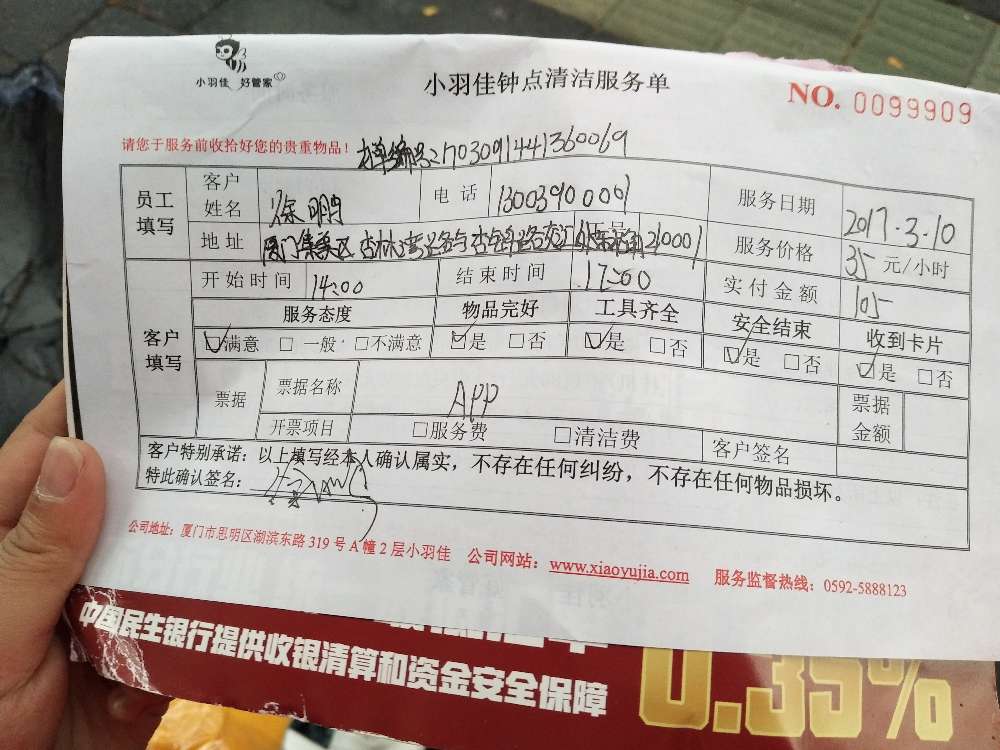 小羽佳 好管家
小羽佳钟点清洁服务单
NO. 0099909
请您于服务前收拾好您的贵重物品!
编号:1703091441360069
员工填写
客户姓名 徐明
电话 13003900001
服务日期 2017.3.10
地址 厦门集美区 杏林湾路与杏锦路交汇 210001
服务价格 35 元/小时
客户填写
开始时间 14:00
结束时间 17:00
实付金额 105
服务态度 物品完好 工具齐全 安全结束 收到卡片
☑满意 □一般 □不满意 ☑是 □否 ☑是 □否 ☑是 □否 ☑是 □否
票据 票据名称 APP 票据金额
开票项目 □服务费 □清洁费 客户签名
客户特别承诺:以上填写经本人确认属实,不存在任何纠纷,不存在任何物品损坏。
特此确认签名:
公司地址:厦门市思明区湖滨东路 319 号 A 幢 2 层小羽佳 公司网站:www.xiaoyujia.com 服务监督热线:0592-5888123
中国民生银行提供收银清算和资金安全保障
0.35%